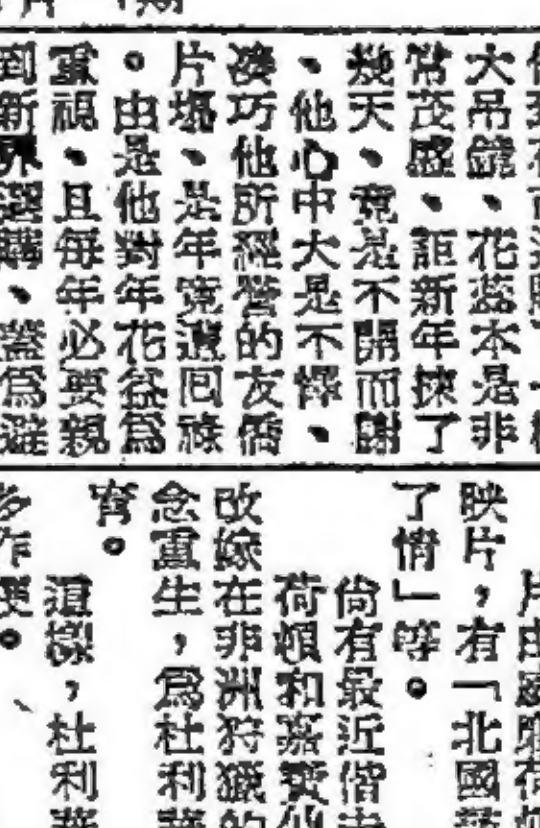 大吊鐘、花蕊本是非
常茂盛、詎新年揀了
幾天、竟是不開而謝
、他心中大是不懌、
湊巧他所經營的友僑
片場、是年竟遭回祿
。由是他對年花益為
重視、且每年必要親
到新界選購、蓋為避
映片，有「北國
了情」等。
尙有最近偕
荷頓和嘉寶仙
改嫁在非洲狩獵的
念重生，為杜利華
宵。
這樣，杜利華